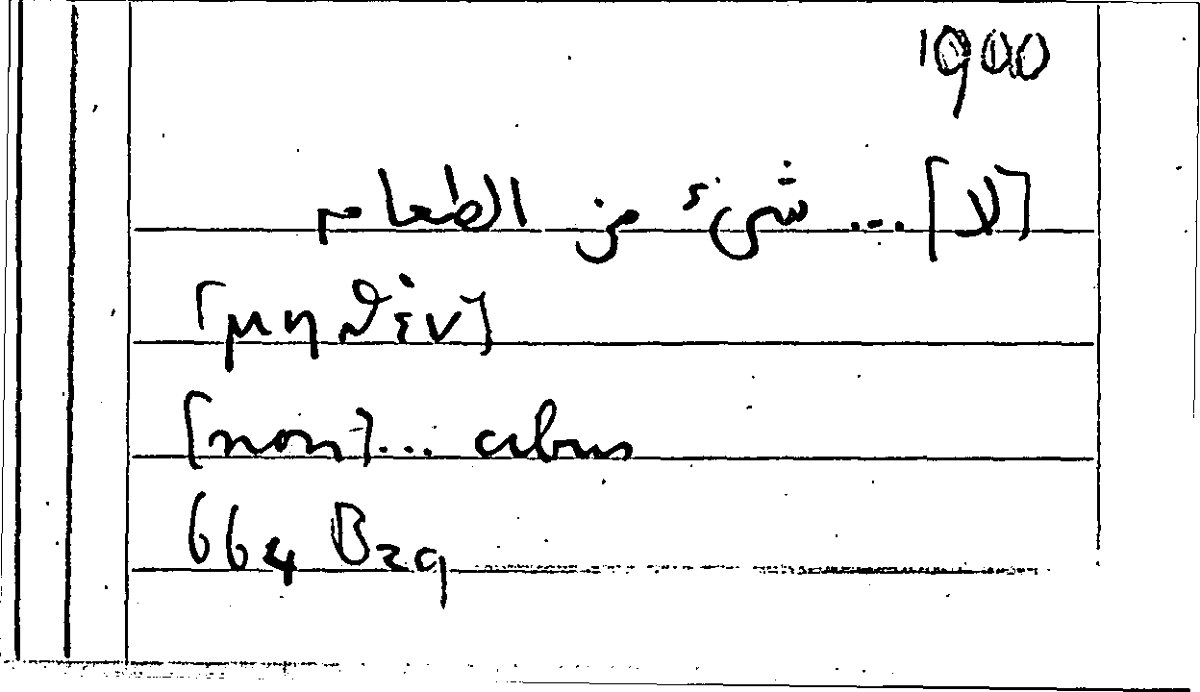 1900
[لا] ... شىء من الطعام
[μηθὲν]
[non]... cibus
664 B29